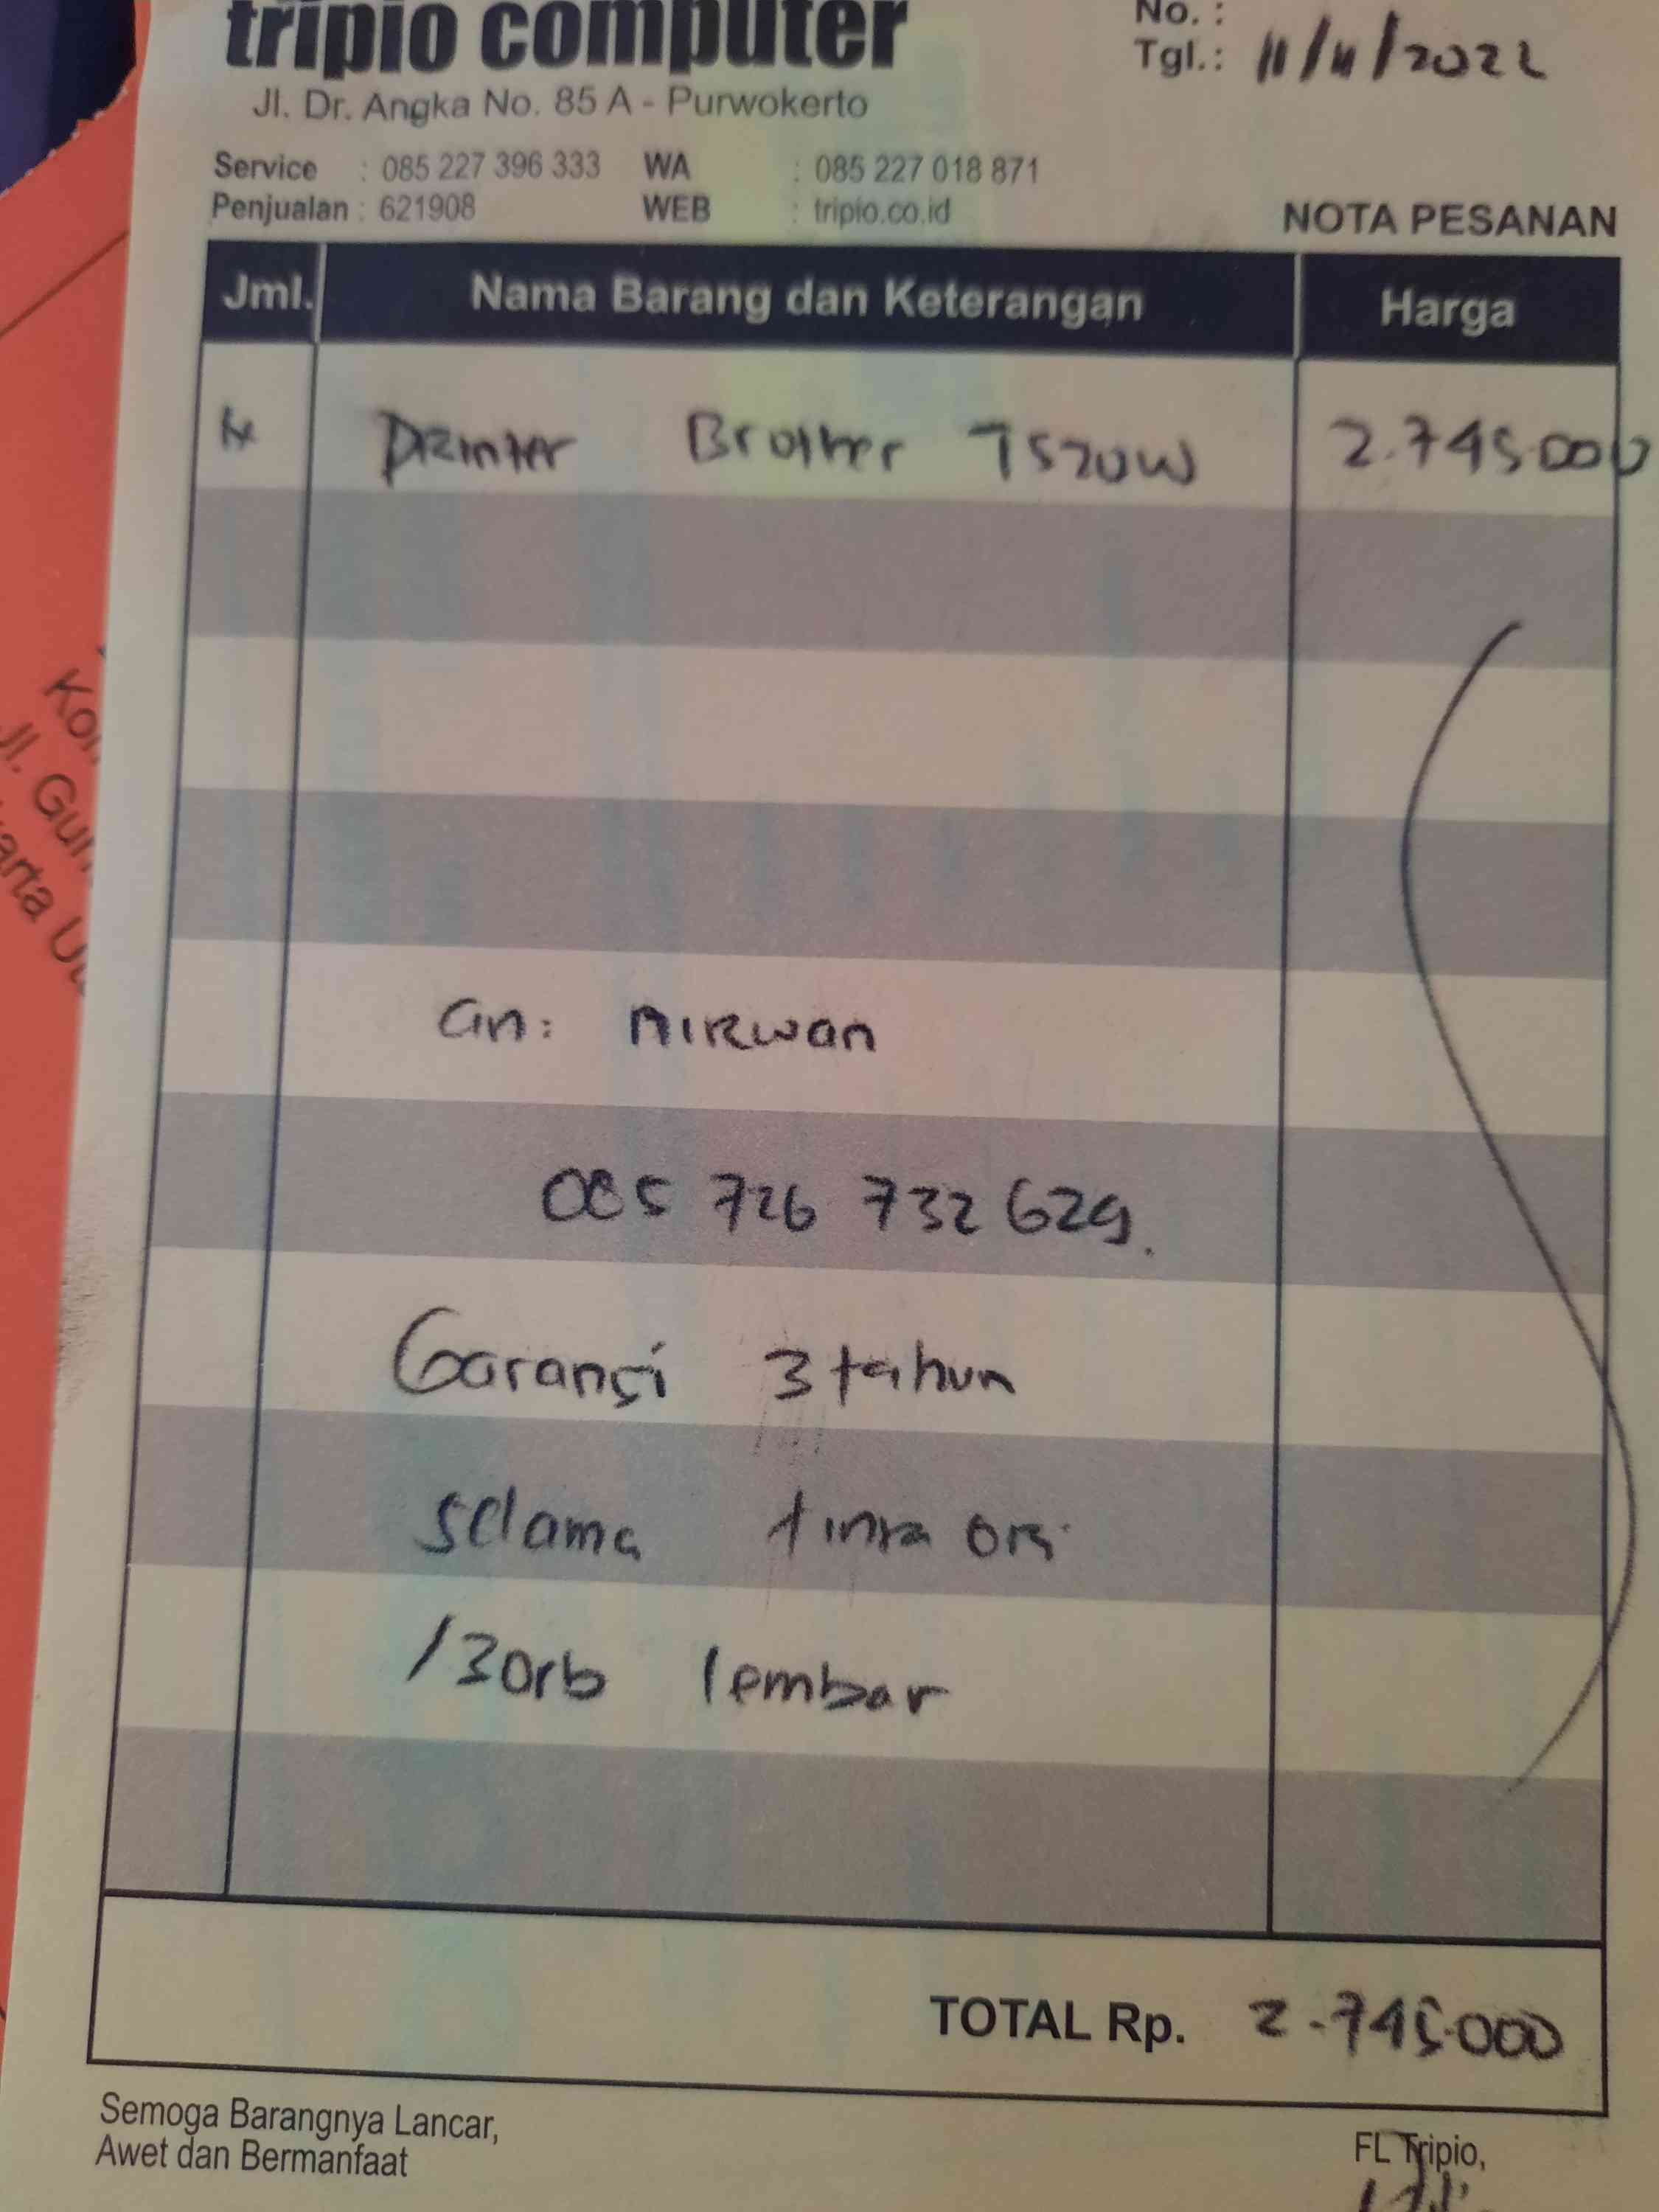 tripio computer
Jl. Dr. Angka No. 85 A - Purwokerto
No. :
Tgl.: 11/11/2022
Service : 085 227 396 333 WA : 085 227 018 871
Penjualan : 621908 WEB : tripio.co.id
NOTA PESANAN
Jml. Nama Barang dan Keterangan Harga
1x Printer Brother T520W 2.745.000
an: Mirwan
085 726 732 629.
Garansi 3 tahun
selama tinta ori
/30rb lembar
TOTAL Rp. 2.745.000
Semoga Barangnya Lancar,
Awet dan Bermanfaat
FL Tripio,
Jl. Gun
arta U